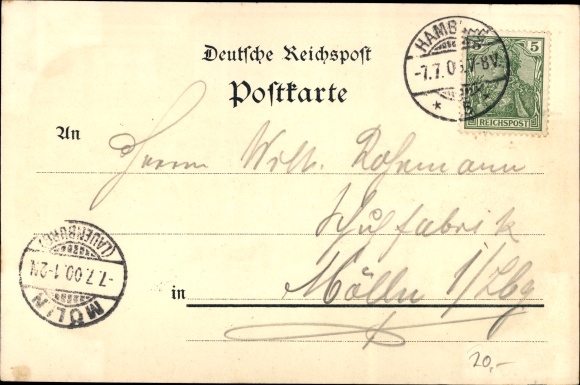 Deutsche Reichspost
Postkarte
HAMBURG
-7.7.00.7-8V.
* 5
5
REICHSPOST
An
Herrn Wilh. Rohrmann
Schuhfabrik
in Mölln i/Lbg
MÖLLN
-7.7.00.1-2N.
(LAUENBURG)
20,-